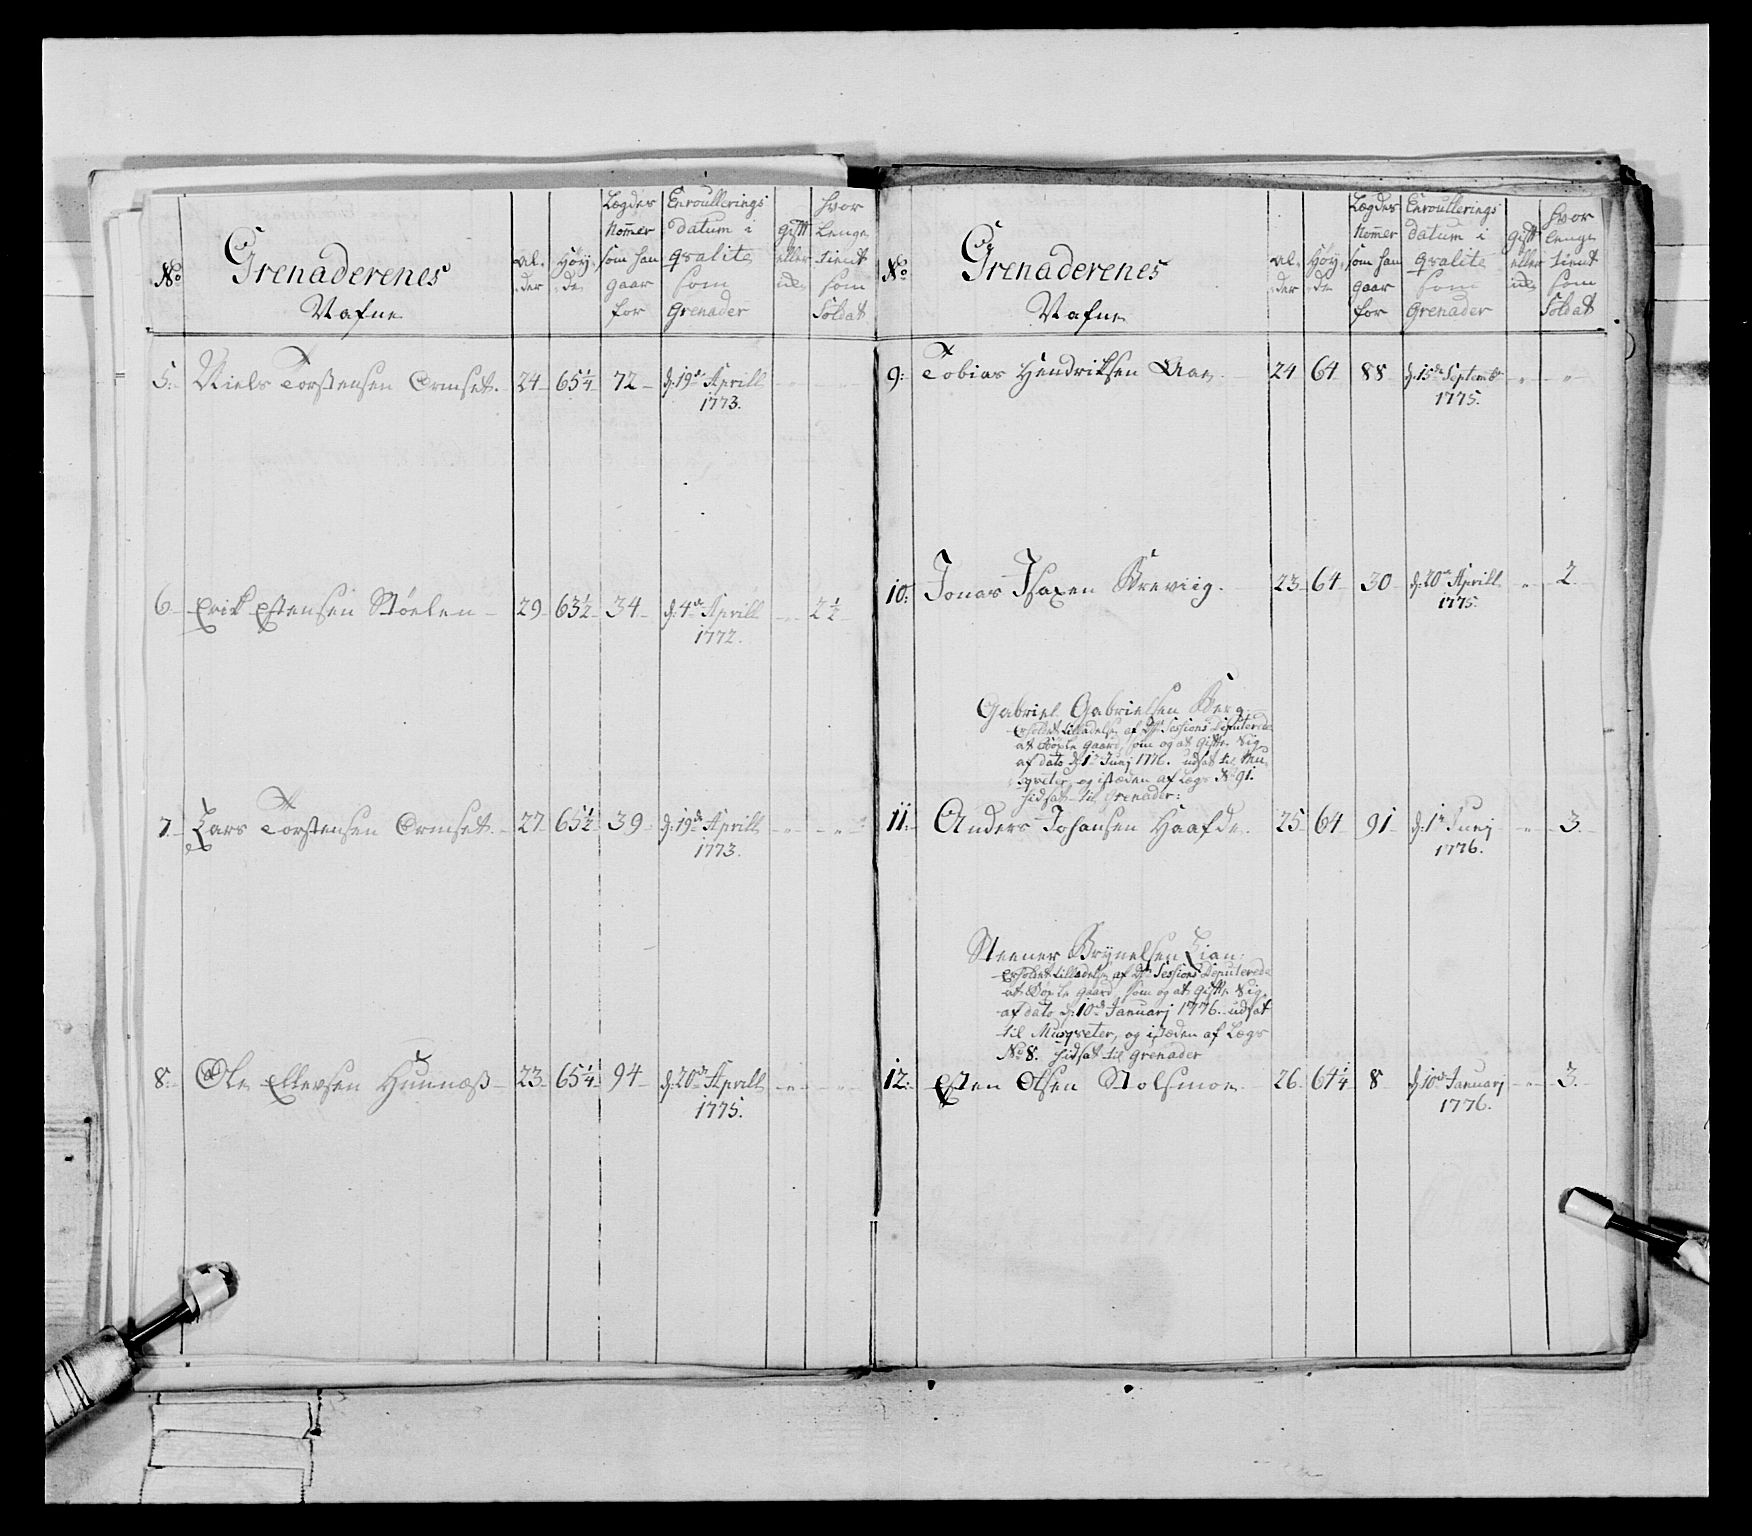 No
Grenaderenes
Nafne
Al-
der
Høy-
de
Lægdes
Nom̄er
som han
gaar
for
Enroullerings
datum i
qvalite
som
Grenader
Gift
eller
ei
hvor
lenge
tient
som
Soldat
5. Niels Torstensen Ormset. 24 65¼ 72 d: 19de Aprill
1773.
6 Erik Estensen Støelen 29 63½ 34 d: 4de Aprill 2½
1772.
7. Lars Torstensen Ormset 27 65½ 39 d: 19de Aprill
1773.
8. Ole Ellevsen Hunnæss 23 65¼ 94 d: 20de Aprill
1775.
No
Grenaderenes
Nafne
Al-
der
Høy-
de
Lægdes
Nom̄er
som han
gaar
for
Enroullerings
datum i
qvalite
som
Grenader
Gift
eller
ei
hvor
lenge
tient
som
Soldat
9. Tobias Hendriksen Aae 24 64 88 d: 15de Septemb " "
1775.
10. Jonas Isaxen Breviig. 23 64 30 d. 20de Aprill " 2
1775.
Gabriel Gabrielsen Berg
Erholdet tilladelse af Sessions Deputerede
at Bøxle gaard, som og at Gifte Sig
af dato d: 1de Junj 1776. udsat til Mu-
sqveter, og isteden af Læg No 91.
hidsat til Grenader:
11. Anders Johansen Haafde. 25 64 91 d: 1de Junj " 3
1776.
Steener Brynelsen Lian:
Erholdet tilladelse af Sessions Deputerede
at Bøxle gaard, som og at Gifte Sig,
af dato d: 10de Januarj 1776. udsat
til Musqveter, og isteden af Læg
No 8. hidsat til Grenader
12. Esten Olsen Stolsmoe 26 64¼ 8 d: 10de Januarj " 3.
1776.